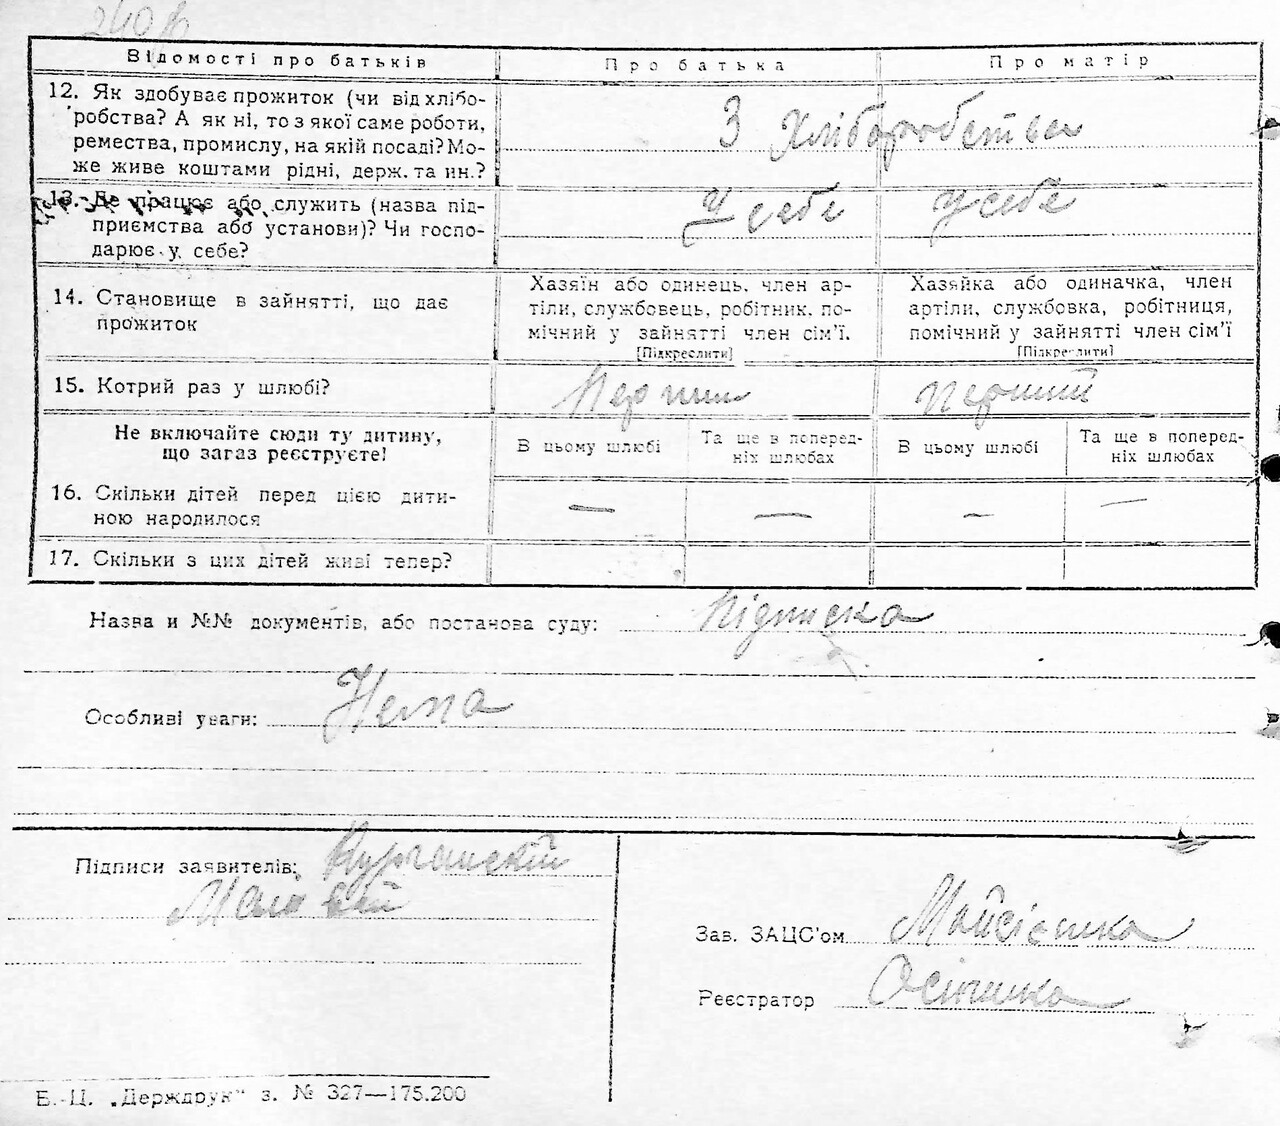 Відомості про батьків
Про батька
Про матір
12. Як здобуває прожиток (чи від хлібо-
робства? А як ні, то з якої саме роботи,
ремества, промислу, на якій посаді? Мо-
же живе коштами рідні, держ. та ин.?
З хліборобства
13. Де працює або служить (назва під-
приємства або установи)? Чи госпо-
дарює у себе?
У себе
У себе
14. Становище в зайнятті, що дає
прожиток
Хазяїн або одинець, член ар-
тіли, службовець, робітник, по-
мічний у зайнятті член сім'ї.
[Підкреслити]
Хазяйка або одиначка, член
артіли, службовка, робітниця,
помічний у зайнятті член сім'ї
[Підкреслити]
15. Котрий раз у шлюбі?
Перший
перший
Не включайте сюди ту дитину,
що загаз реєструєте!
В цьому шлюбі
Та ще в поперед-
ніх шлюбах
В цьому шлюбі
Та ще в поперед-
ніх шлюбах
16. Скільки дітей перед цією дити-
ною народилося
—
—
—
—
17. Скільки з цих дітей живі тепер?
Назва и №№ документів, або постанова суду: Підписка
Особливі уваги: Нема
Підписи заявителів: Курганскій
Зав. ЗАЦС'ом
Реєстратор
Б.-Ц. „Держдрук" з. № 327—175.200